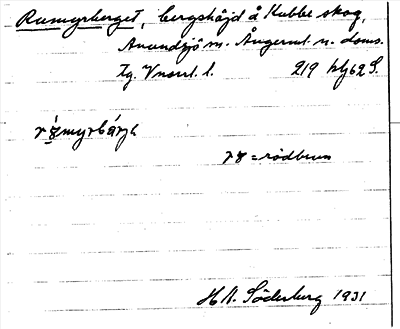 Rumyrberget, bergshöjd å Kubbe skog,
Anundsjö sn. Ångerml. n. doms.
tg. Vnorrl. l. 219 hlj 62 S.
rɤ = rödbrun
H A. Söderberg 1931